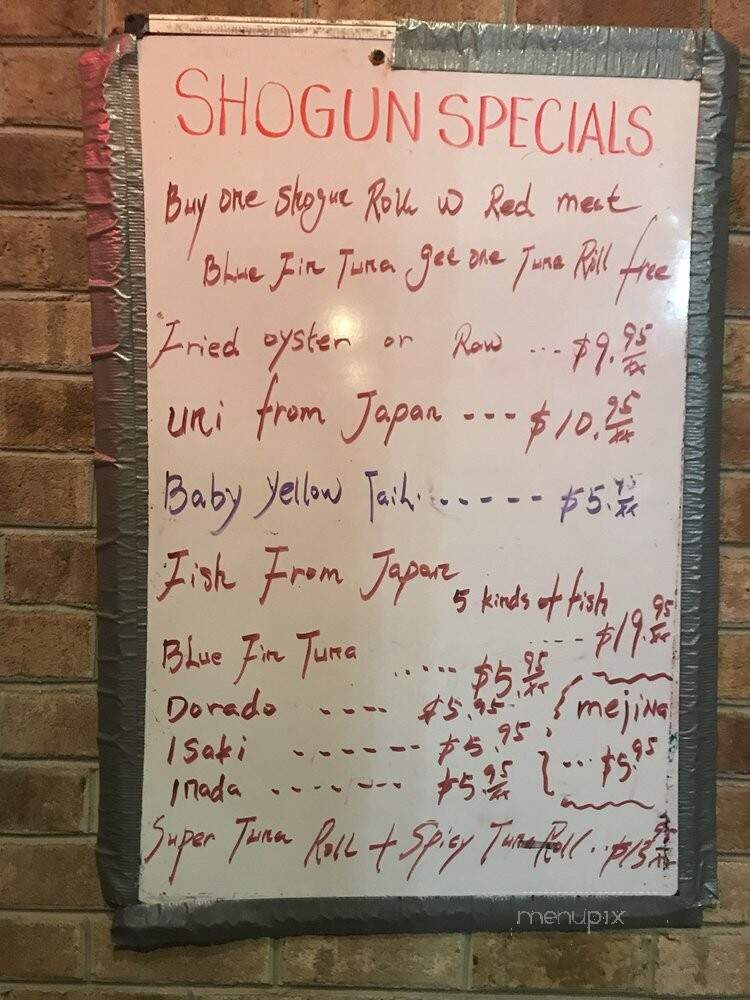 SHOGUN SPECIALS
Buy one Shogun Roll W Red meat
Blue Fin Tuna get one Tuna Roll free
Fried oyster or Raw ... $9.95/xx
Uni from Japan --- $10.95/xx
Baby Yellow Tail. ----- $5.95/xx
Fish From Japan
5 kinds of fish
---- $19.95/xx
Blue Fin Tuna ..... $5.95/xx
Dorado ---- $5.95
Isaki ------ $5.95
Inada ------- $5.95/xx
mejina
... $5.95
Super Tuna Roll + Spicy Tuna Roll .. $13.95/xx
menupix